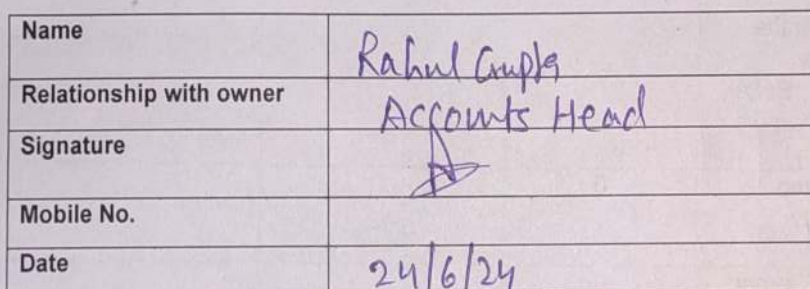 Name Rahul Gupta
Relationship with owner Accounts Head
Signature
Mobile No.
Date 24/6/24